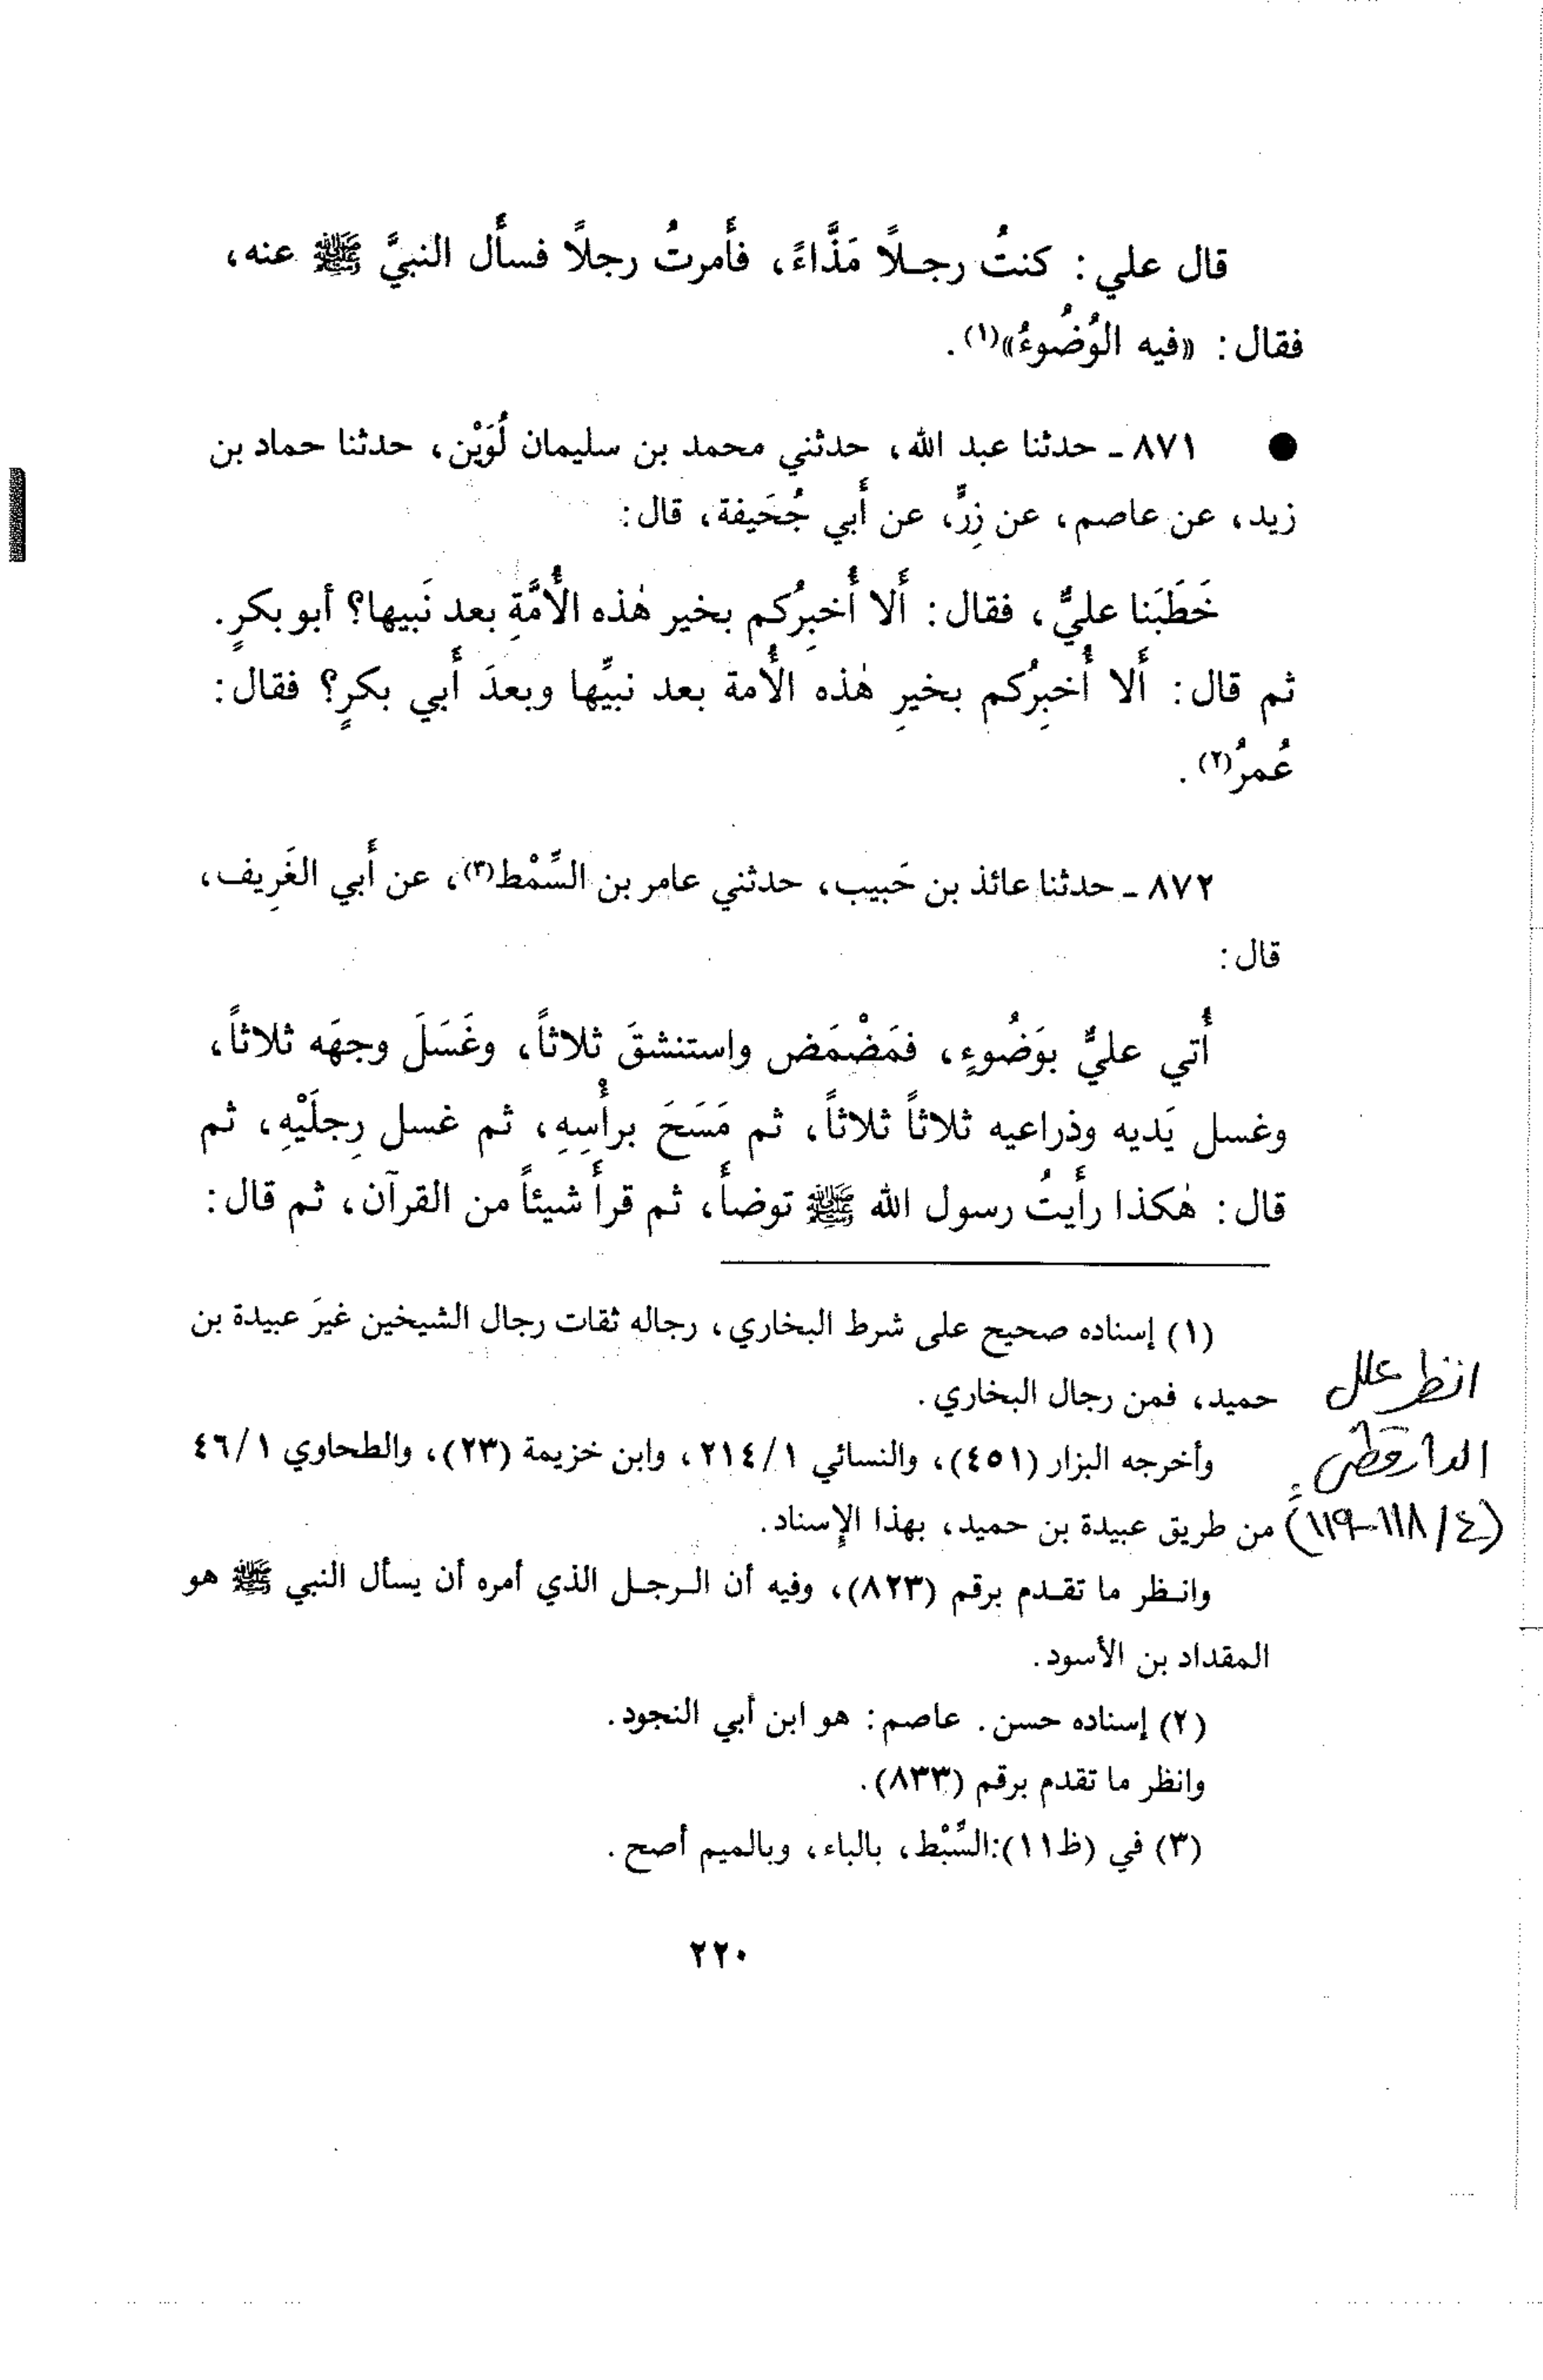 قال علي: كنتُ رجـلاً مَذَّاءً، فأَمرتُ رجلًا فسأَل النبيَّ ﷺ عنه،
فقال: «فيه الوُضُوءُ»(١).
● ٨٧١ ـ حدثنا عبد الله، حدثني محمد بن سليمان لُوَيْن، حدثنا حماد بن
زيد، عن عاصم، عن زِرٍّ، عن أَبي جُحَيفة، قال:
خَطَبَنا عليٌّ، فقال: أَلا أُخبِرُكم بخير هٰذه الأُمَّةِ بعد نَبيها؟ أبو بكرٍ.
ثم قال: أَلا أُخبِرُكم بخيرِ هٰذه الأُمة بعد نبيِّها وبعدَ أَبي بكرٍ؟ فقال:
عُمرُ(٢).
٨٧٢ ـ حدثنا عائذ بن حَبيب، حدثني عامر بن السِّمْط(٣)، عن أَبي الغَرِيف،
قال:
أُتي عليٌّ بوَضُوءٍ، فمَضْمَض واستنشقَ ثلاثاً، وغَسَلَ وجهَه ثلاثاً،
وغسل يَديه وذراعيه ثلاثاً ثلاثاً، ثم مَسَحَ برأْسِهِ، ثم غسل رِجلَيْهِ، ثم
قال: هٰكذا رأَيتُ رسول الله ﷺ توضأَ، ثم قرأَ شيئاً من القرآن، ثم قال:
(١) إسناده صحيح على شرط البخاري، رجاله ثقات رجال الشيخين غيرَ عبيدة بن
حميد، فمن رجال البخاري.
وأخرجه البزار (٤٥١)، والنسائي ٢١٤/١، وابن خزيمة (٢٣)، والطحاوي ٤٦/١
من طريق عبيدة بن حميد، بهذا الإسناد.
وانـظر ما تقـدم برقم (٨٢٣)، وفيه أن الـرجـل الذي أمره أن يسأل النبي ﷺ هو
المقداد بن الأسود.
(٢) إسناده حسن. عاصم: هو ابن أبي النجود.
وانظر ما تقدم برقم (٨٣٣).
(٣) في (ظ١١): السِّبْط، بالباء، وبالميم أصح.
انظر علل
الدارقطني
(٤/ ١١٨-١١٩)
٢٢٠